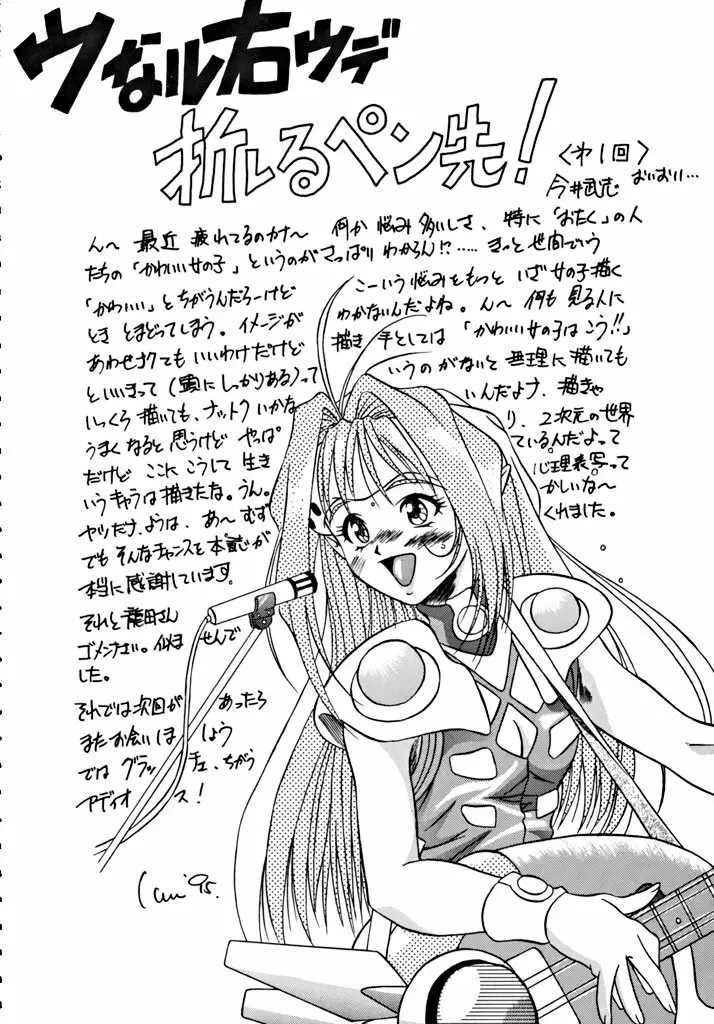 ウなル右ウデ
折れるペン先!
〈オ1回〉
今井武志 おいおい…
んー 最近 疲れてるのカナ〜 何か悩み多いしさ、特に「おたく」の人
たちの「かわいい女の子」というのがさっぱりわからん!?…… きっと世間でいう
「かわいい」とちがうんだろーけど こーいう悩みをもっと いざ女の子描く
とき とまどってしまう。イメージが わかないんだよね。んー 何も 見る人に
あわせナクてもいいわけだけど 描き手としては「かわいい女の子はこう!!」
といいきって(頭にしっかりある)って いうのがないと 無理に描いても
いっくら描いても、ナットクいかな いんだよナ、描きゃ
うまくなると思うけど やっぱ り、2次元の世界
だけど ここにこうして 生き ているんだよって
いうキャラは描きたな。うん。 心理表写って
ヤツだナ、ようは、あ〜むず かしいな〜
でもそんなチャンスを本誌が くれました。
本当に感謝しています。
それと龍田さん
ゴメンナさい。似ま せんで
した。
それでは次回が あったら
またお会いしま しょう
では グラッ チェ、ちがう
アディオ ス!
'95.